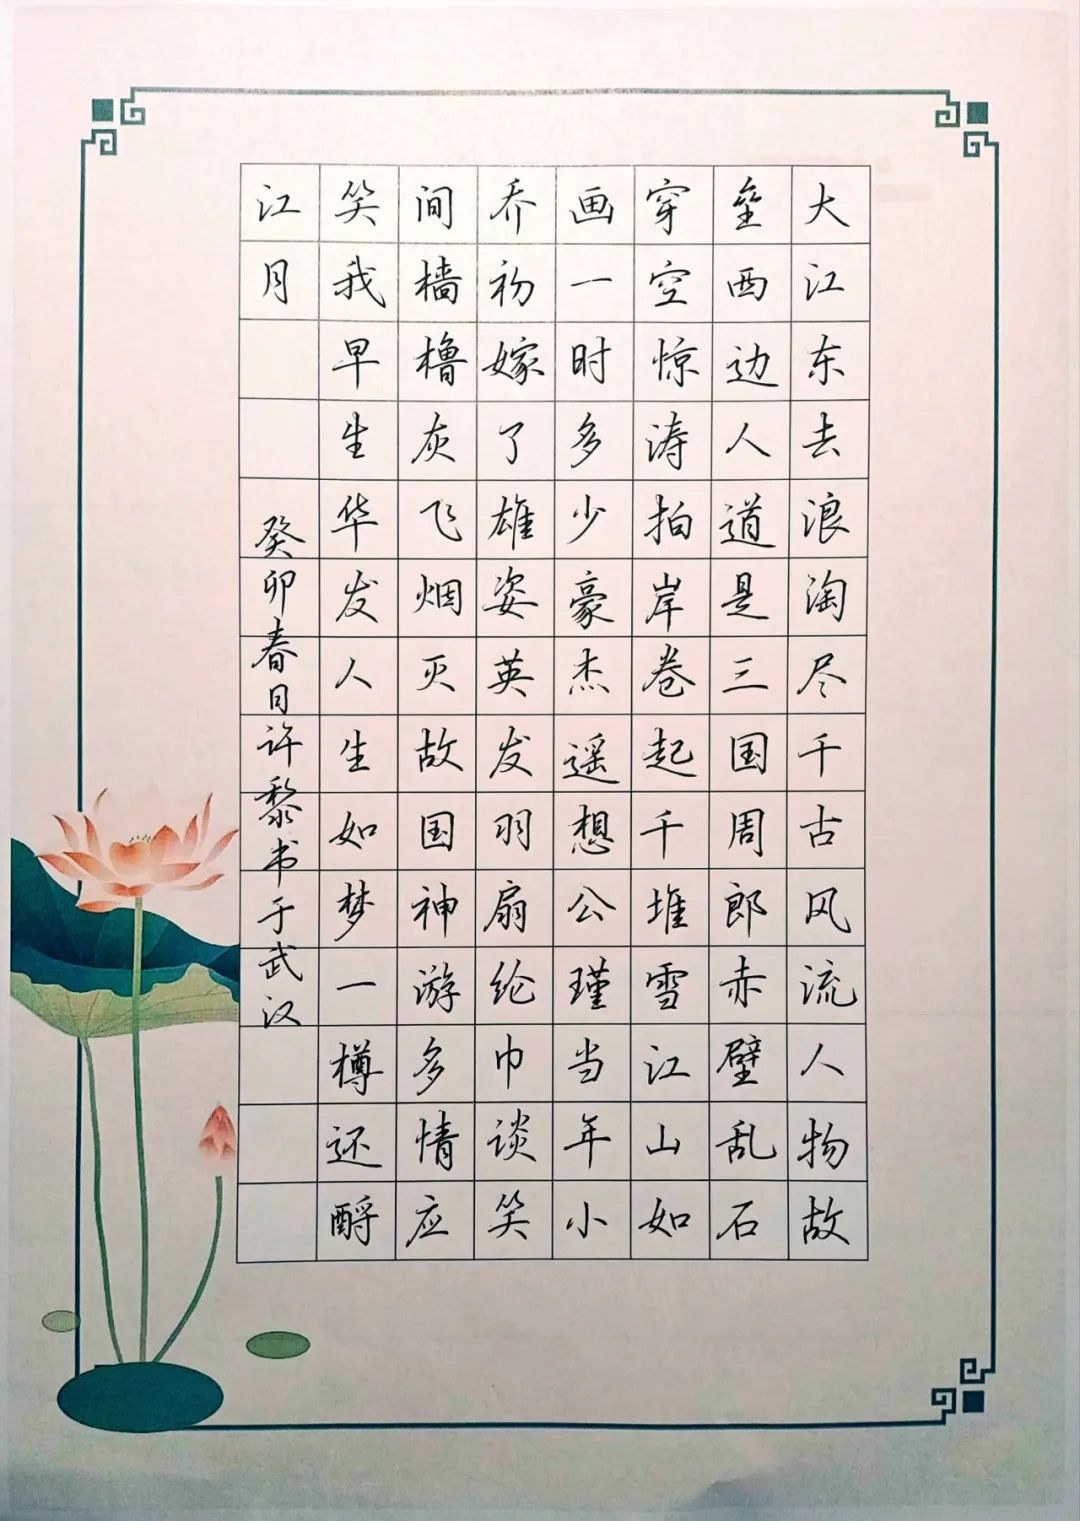 大江东去浪淘尽千古风流人物故
垒西边人道是三国周郎赤壁乱石
穿空惊涛拍岸卷起千堆雪江山如
画一时多少豪杰遥想公瑾当年小
乔初嫁了雄姿英发羽扇纶巾谈笑
间樯橹灰飞烟灭故国神游多情应
笑我早生华发人生如梦一樽还酹
江月
癸卯春日许黎书于武汉